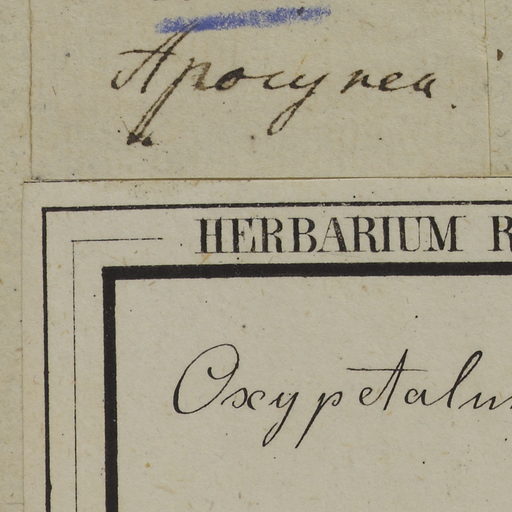 Apocynea.
HERBARIUM R
Oxypetalu